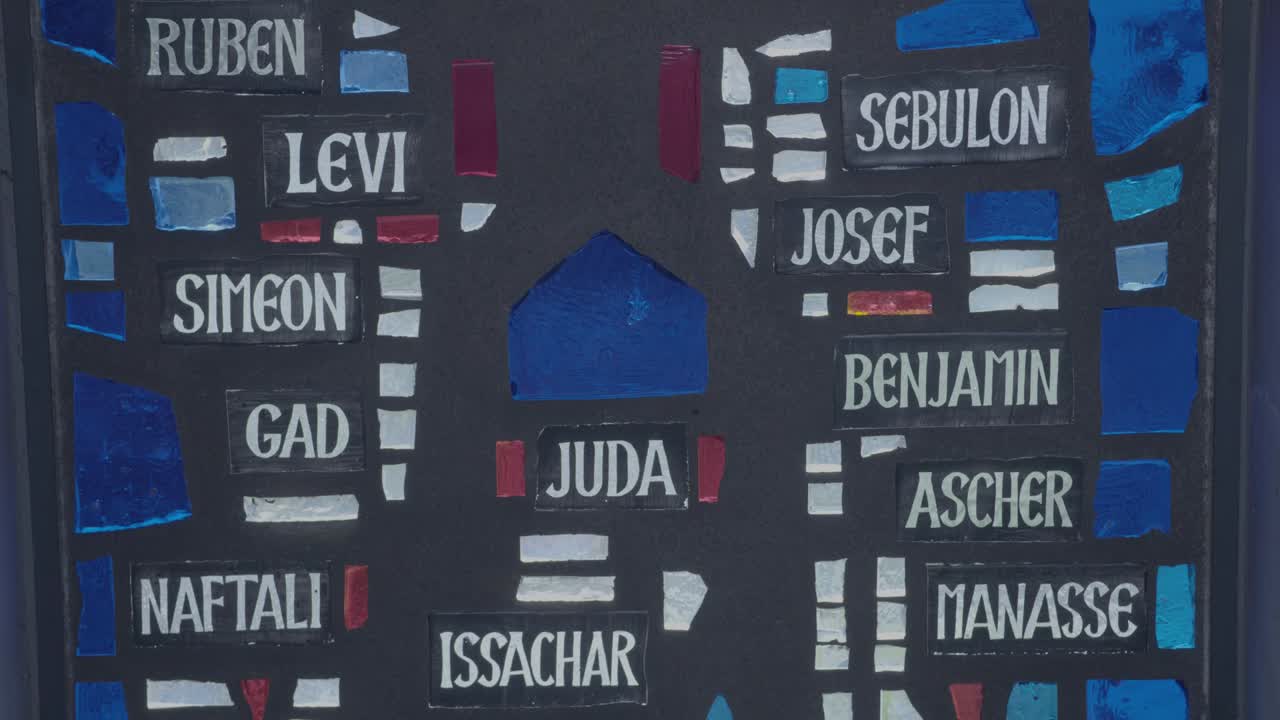 RUBEN
LEVI
SIMEON
GAD
NAFTALI
JUDA
ISSACHAR
SEBULON
JOSEF
BENJAMIN
ASCHER
MANASSE